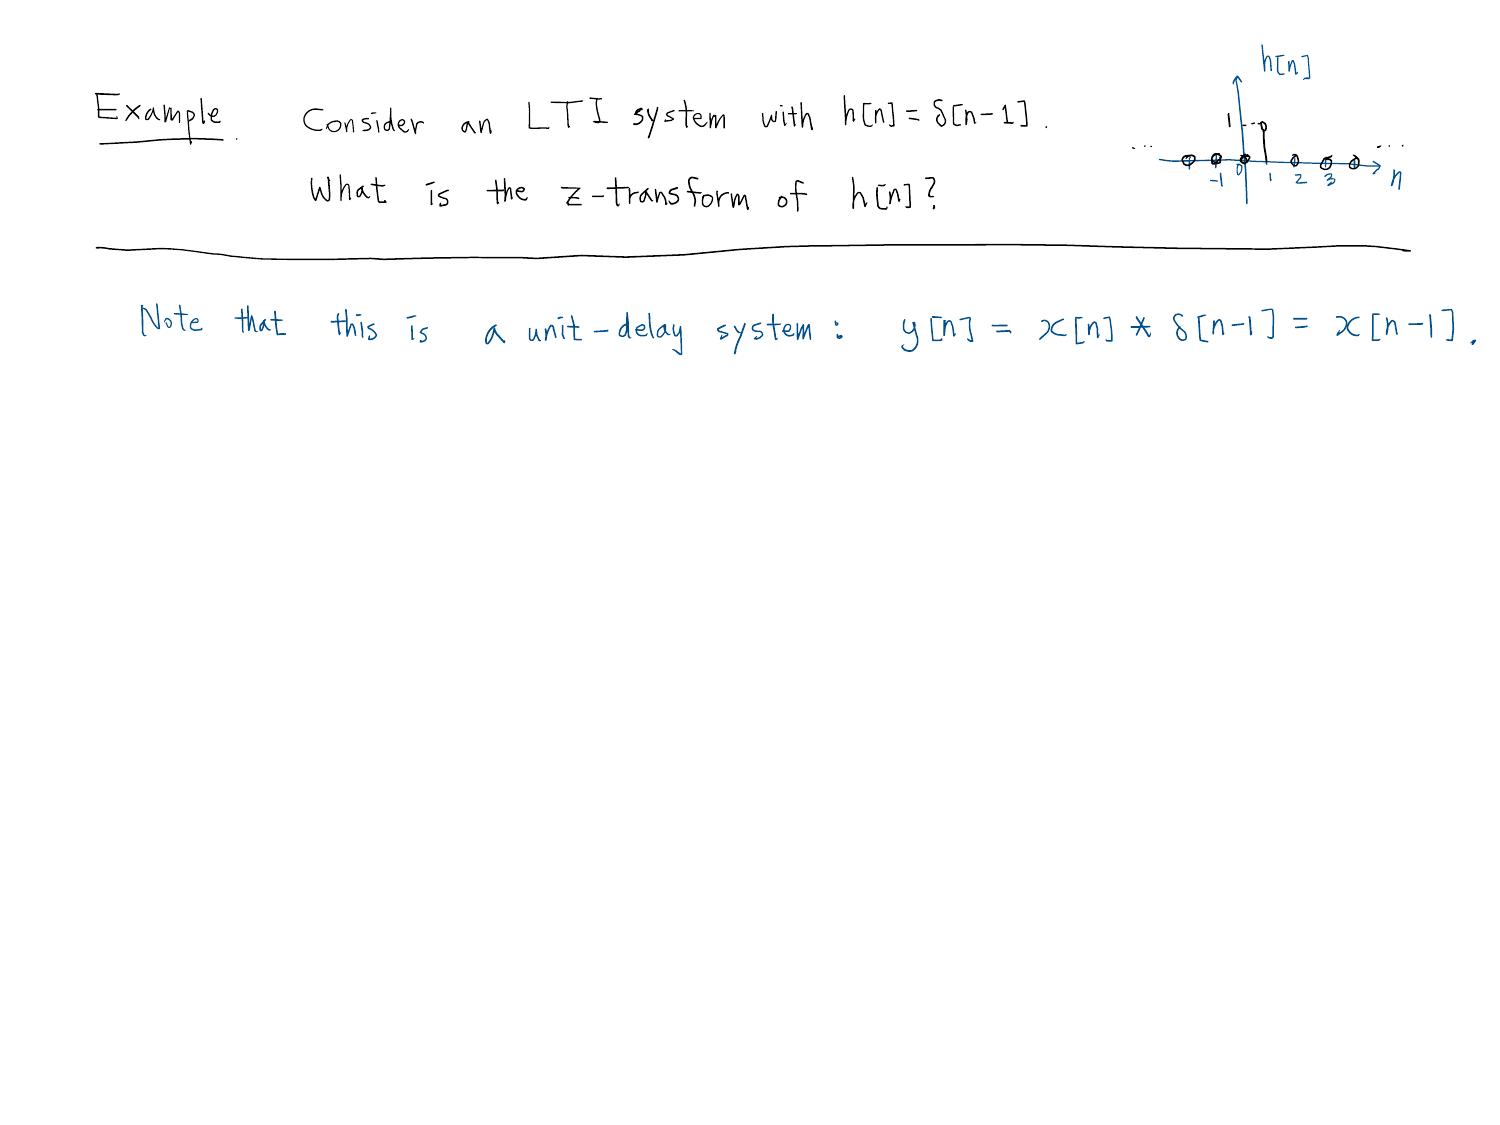 Example. Consider an LTI system with h[n] = δ[n-1].
What is the z-transform of h[n]?
h[n]
1
... ...
-1 0 1 2 3 n
Note that this is a unit-delay system: y[n] = x[n] * δ[n-1] = x[n-1].